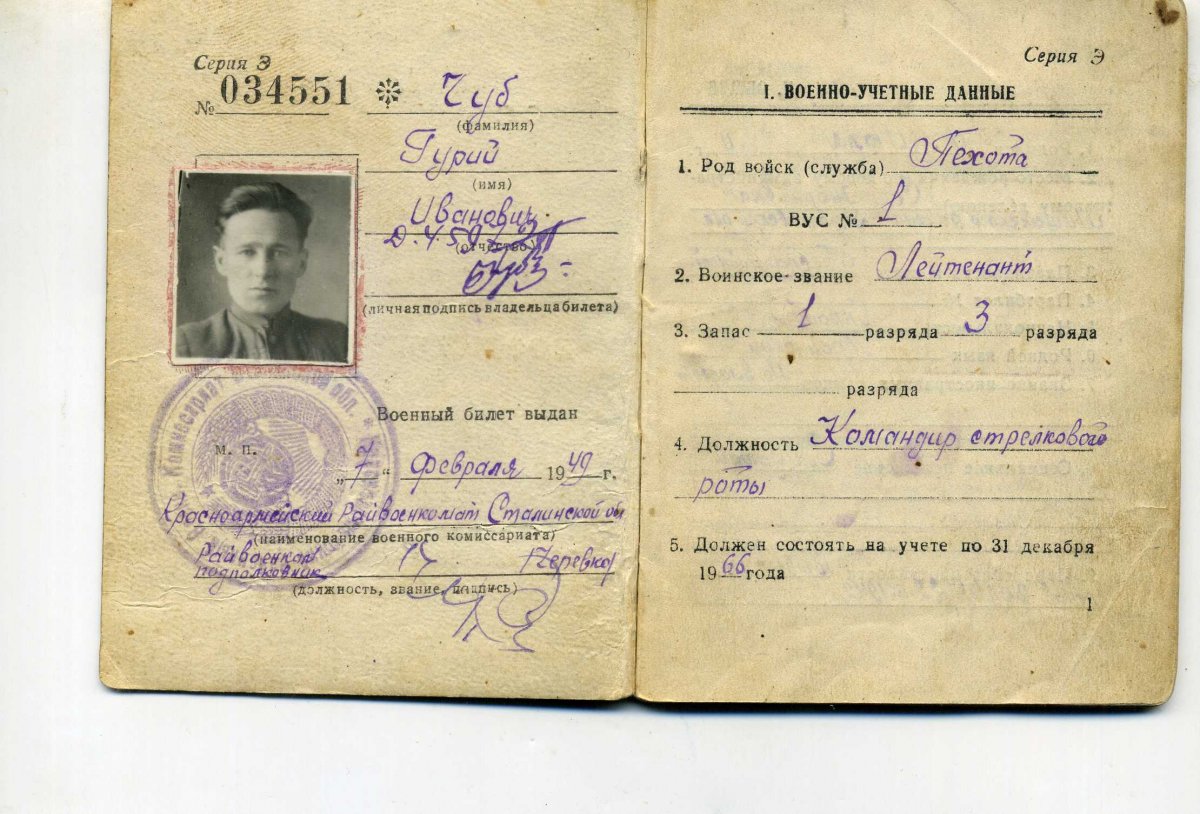 Серия Э
№ 034551
Чуб
(фамилия)
Гурий
(имя)
Иванович
(отчество)
(личная подпись владельца билета)
Военный билет выдан
М. П.
„7“ февраля 1949 г.
Красноармейский Райвоенкомат Сталинской обл
(наименование военного комиссариата)
Райвоенком
подполковник
(должность, звание, подпись)
Комиссариат обл.
Серия Э
I. ВОЕННО-УЧЕТНЫЕ ДАННЫЕ
1. Род войск (служба) Пехота
ВУС № 1
2. Воинское звание Лейтенант
3. Запас 1 разряда 3 разряда
разряда
4. Должность Командир стрелковой
роты
5. Должен состоять на учете по 31 декабря
1966 года
1